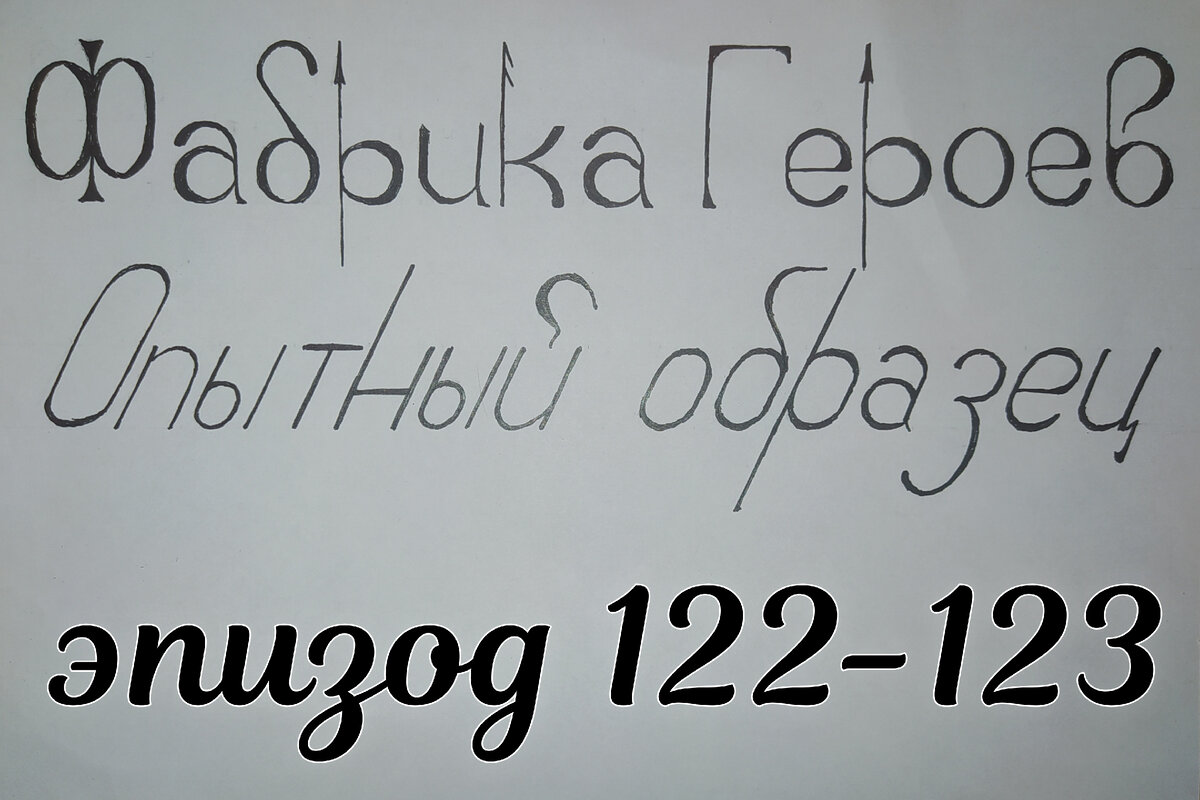 Фабрика Героев
Опытный образец
эпизод 122-123